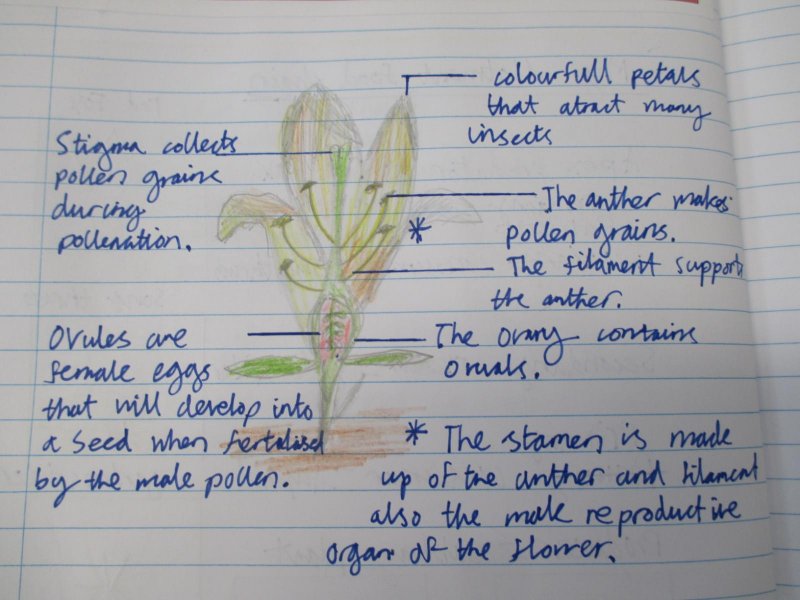 colourfull petals
that atract many
insects
Stigma collects
pollen grains
during
pollenation.
The anther makes
pollen grains.
The filament supports
the anther.
Ovules are
female eggs
that will develop into
a seed when fertalised
by the male pollen.
The ovary contains
ovuals.
* The stamen is made
up of the anther and filament
also the male reproductive
organ of the flower.
*